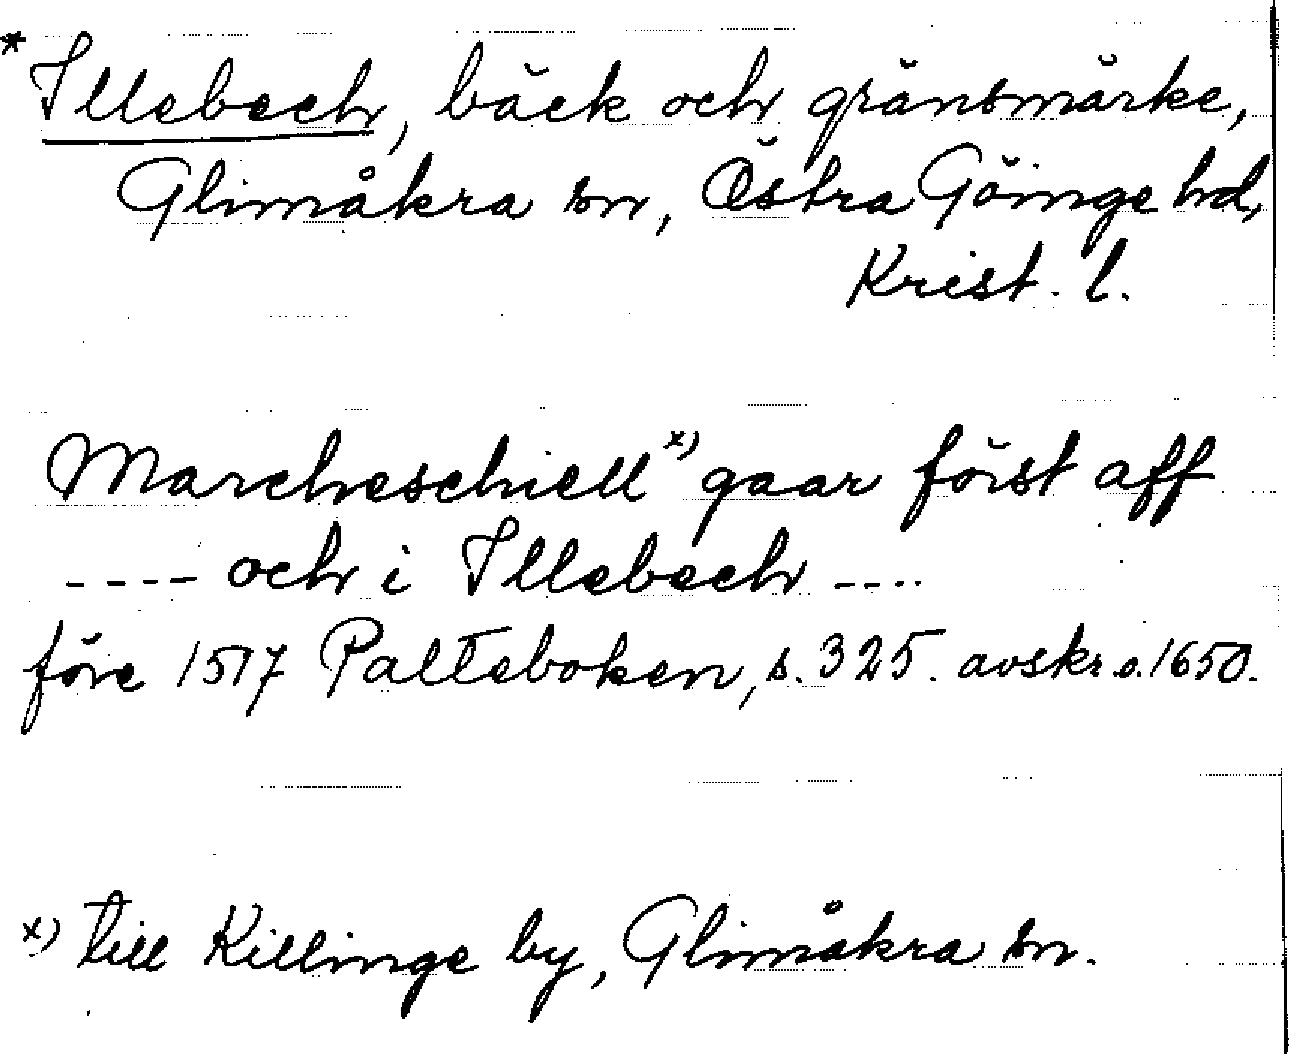 * Illebech, bäck och gränsmärke,
Glimåkra sn, Östra Göinge hd,
Krist. l.
Marcheschiell x) gaar först aff
---- och i Illebech ----
före 1517 Palteboken, s. 325. avskr. o. 1650.
x) till Killinge by, Glimåkra sn.